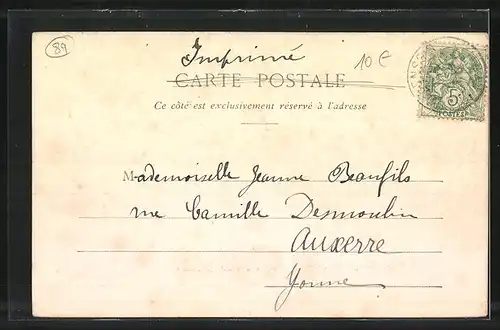 89
Imprimé
10 €
CARTE POSTALE
Ce côté est exclusivement réservé à l'adresse
5c
POSTES
Mademoiselle Jeanne Beaufils
rue Camille Desmoulin
Auxerre
Yonne